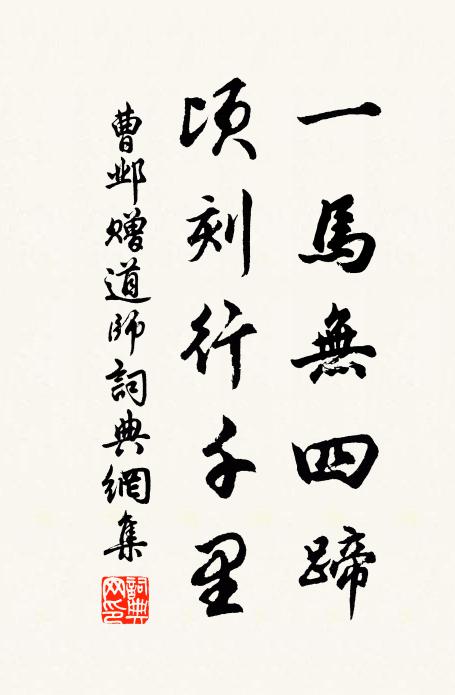 一馬無四蹄
頃刻行千里
曹邺贈道師詞典網集
詞典网印